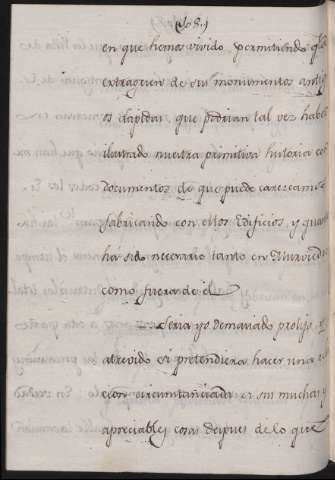 en que hemos vivido, permitiendo q.
extragesen de sus monumentos
lapidas, que podrian tal vez haber
ilustrado nuestra primitiva historia con
documentos de que puede carezcamos
fabricando con ellos Edificios, y quanto
ha sido necesario tanto en Murviedro
como fuera de el
Seria yo demasiado prolijo, y
atrevido si pretendiera hacer una
cion circunstanciada de sus muchas y
apreciables cosas despues de lo que